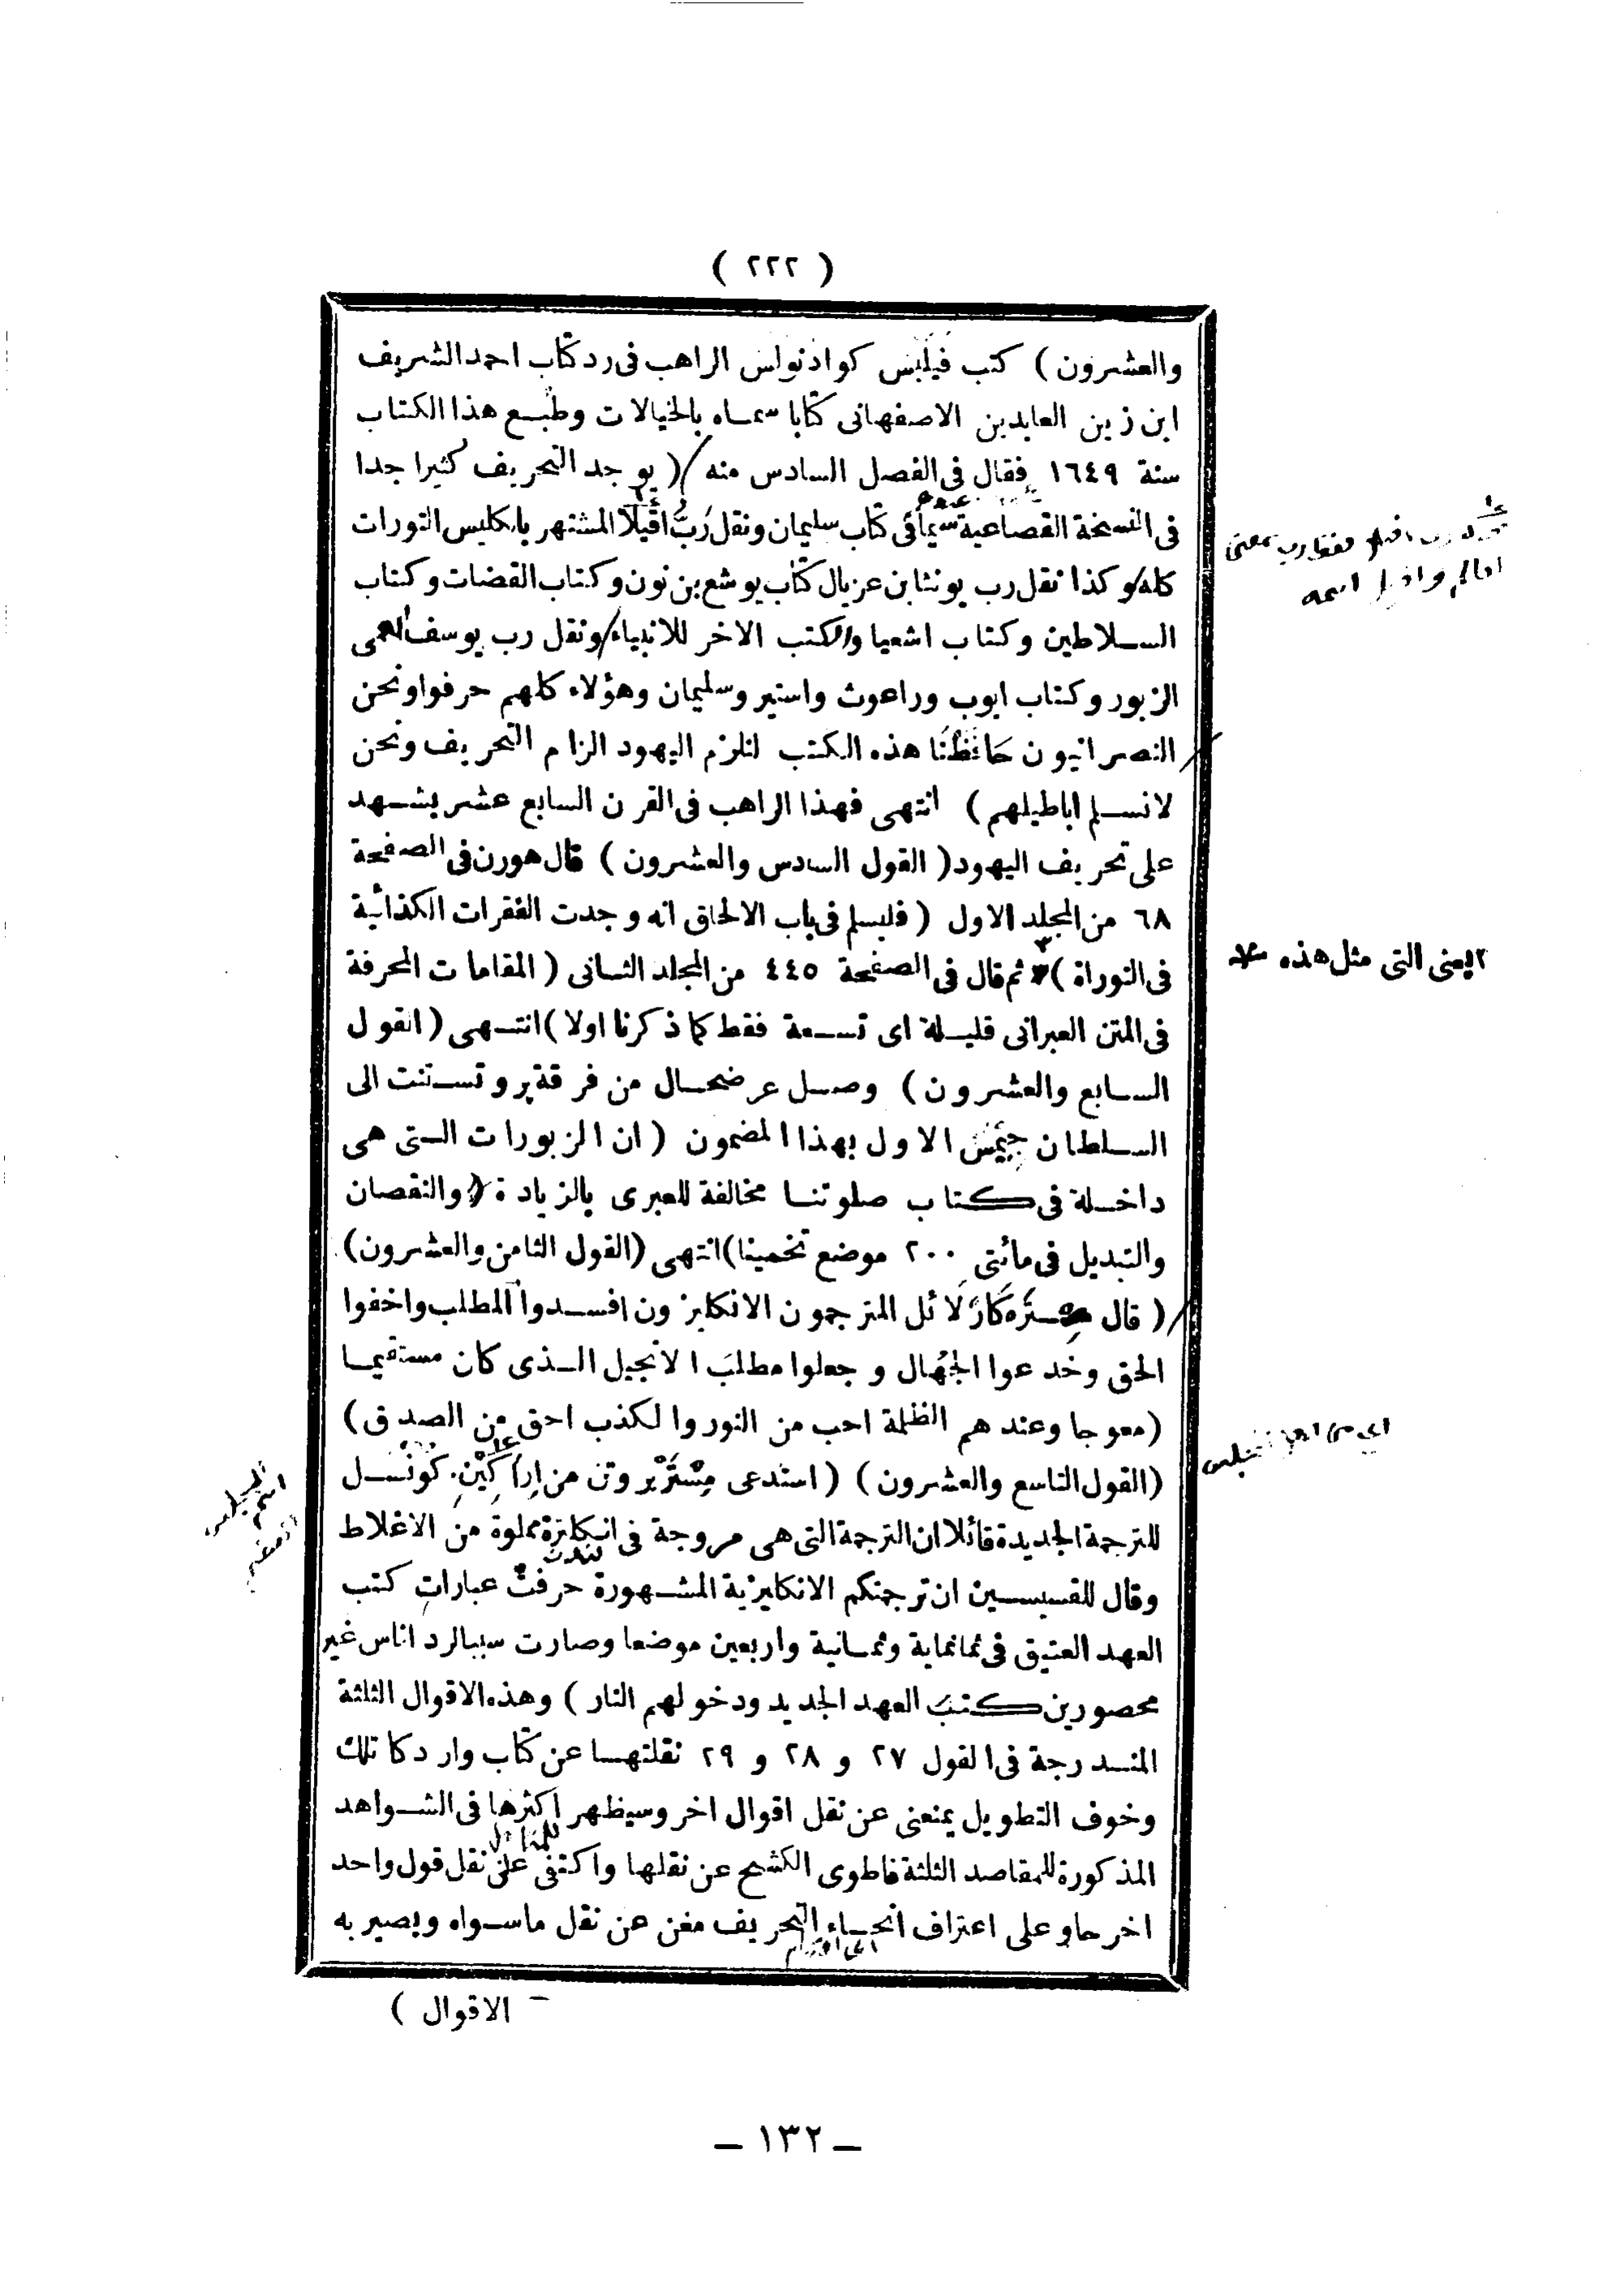 ( ٢٢٢ )
والعشرون ) كتب فيلبس كواذنولس الراهب فى رد كتاب احمد الشريف
ابن زين العابدين الاصفهانى كتابا سماه بالخيالات وطبع هذا الكتاب
سنة ١٦٤٩ فقال فى الفصل السادس منه ( يوجد التحريف كثيرا جدا
فى النسخة القصاعية سيما فى كتاب سليمان ونقل رَبُّ اقيلا المشتهر بانكليس التورات
كله وكذا نقل رب يونثا بن عزيال كتاب يوشع بن نون وكتاب القضات وكتاب
السلاطين وكتاب اشعيا والكتب الاخر للانبياء ونقل رب يوسف العمى
الزبور وكتاب ايوب وراعوث واستير وسليمان وهؤلاء كلهم حرفوا ونحن
النصرانيون حَافَظْنَا هذه الكتب لنلزم اليهود الزام التحريف ونحن
لانسلم اباطيلهم ) انتهى فهذا الراهب فى القرن السابع عشر يشهد
على تحريف اليهود ( القول السادس والعشرون ) قال هورن فى الصفحة
٦٨ من المجلد الاول ( فليسلم فى باب الالحاق انه وجدت الفقرات الكذائية
فى التوراة ) ثم قال فى الصفحة ٤٤٥ من المجلد الثانى ( المقامات المحرفة
٢ يعنى التى مثل هذه
فى المتن العبرانى قليلة اى تسعة فقط كما ذكرنا اولا ) انتهى ( القول
السابع والعشرون ) وصل عرضحال من فرقة پروتستنت الى
السلطان جيمس الاول بهذا المضمون ( ان الزبورات التى هى
داخلة فى كتاب صلوتنا مخالفة للعبرى بالزيادة والنقصان
والتبديل فى مائتى ٢٠٠ موضع تخمينا ) انتهى ( القول الثامن والعشرون )
( قال مِستَر كَارْلَائل المترجمون الانكليزون افسدوا المطلب واخفوا
الحق وخدعوا الجُهال وجعلوا مطلبَ الانجيل الذى كان مستقيما
( معوجا وعندهم الظلمة احب من النور والكذب احق من الصدق )
( القول التاسع والعشرون ) ( استدعى مِسْتَرْبروتن من اراكين كَونْسل
للترجمة الجديدة قائلا ان الترجمة التى هى مروجة فى انكلتره مملوة من الاغلاط
وقال للقسيسين ان ترجمتكم الانكليزية المشهورة حرفتْ عباراتِ كتب
العهد العتيق فى ثمانماية وثمانية واربعين موضعا وصارت سببا لرد اناس غير
محصورين كتبَ العهد الجديد ودخولهم النار ) وهذه الاقوال الثلثة
المندرجة فى القول ٢٧ و ٢٨ و ٢٩ نقلتها عن كتاب وارد كاتلك
وخوف التطويل يمنعنى عن نقل اقوال اخر وسيظهر اكثرها فى الشواهد
المذكورة للمقاصد الثلثة فاطوى الكشح عن نقلها واكتفى على نقل قول واحد
اخر حاو على اعتراف انحاء التحريف مغن عن نقل ماسواه ويصير به
الاقوال )
– ١٣٢ –